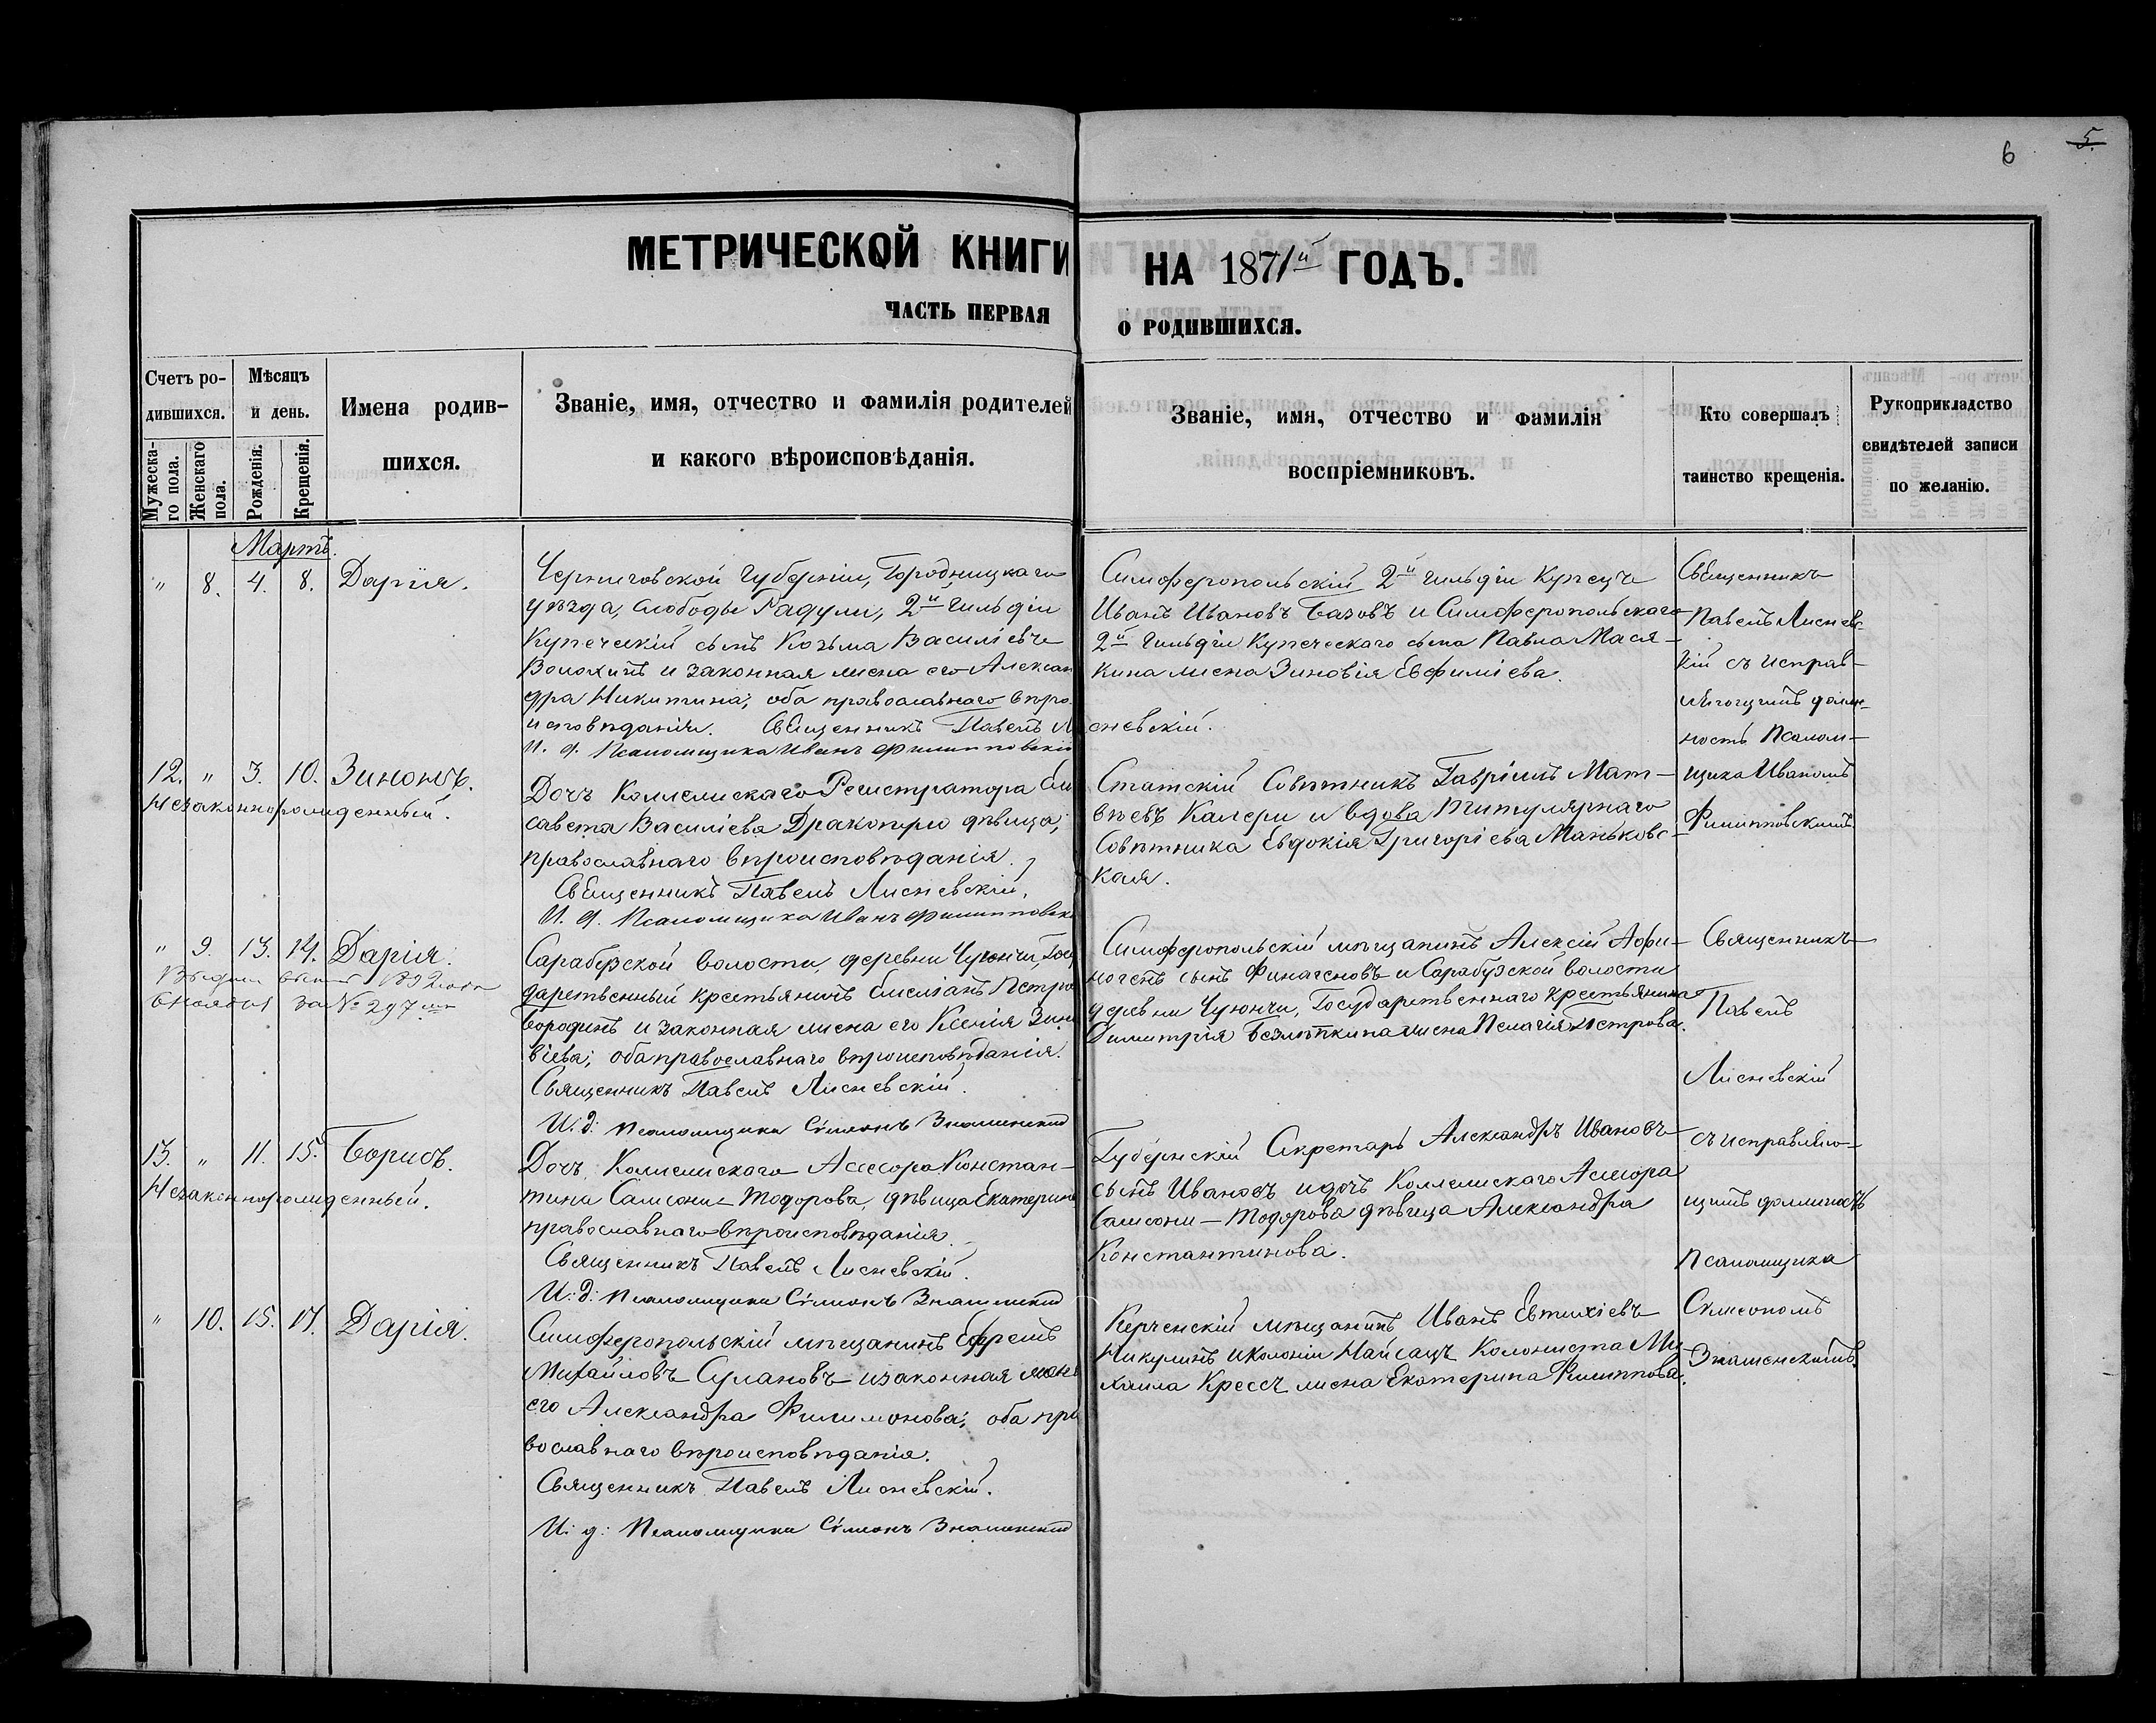 6 5.
МЕТРИЧЕСКОЙ КНИГИ НА 1871й ГОДЪ.
ЧАСТЬ ПЕРВАЯ О РОДИВШИХСЯ.
Счетъ ро-
дившихся.
Мужеска-
го пола.
Женскаго
пола.
Мѣсяцъ
и день.
Рожденія.
Крещенія.
Имена родив-
шихся.
Званіе, имя, отчество и фамилія родителей
и какого вѣроисповѣданія.
Званіе, имя, отчество и фамилія
воспріемниковъ.
Кто совершалъ
таинство крещенія.
Рукоприкладство
свидѣтелей записи
по желанію.
Мартъ.
" 8. 4. 8. Дарія.
Черниговской Губерніи, Городницкаго
уѣзда, слободы Радули, 2й гильдіи
Купеческій сынъ Козьма Василіевъ
Волохинъ и законная жена его Алексан
дра Никитина; оба православнаго вѣро
исповѣданія. Священникъ Павелъ Ли
сневскій.
И. д. Псаломщика Иванъ Филипповскій
Симферопольскій 2й гильдіи Купецъ
Иванъ Ивановъ Базовъ и Симферопольскаго
2й гильдіи Купеческаго сына Павла Мася-
кина жена Зиновія Евфиміева.
Священникъ
Павелъ Лиснев-
кій съ исправ-
ляющимъ долж-
ность Псалом-
щика Иваномъ
Филипповскимъ.
12. " 3. 10. Зинонъ.
Незаконнорожденный.
Дочь Коллежскаго Регистратора Ели
савета Василіева Дракопуло дѣвица;
православнаго вѣроисповѣданія.
Священникъ Павелъ Лисневскій.
И. д. Псаломщика Иванъ Филипповск
Статскій Совѣтникъ Гавріилъ Мат-
вѣевъ Калери и вдова Титулярнаго
Совѣтника Евдокія Григоріева Маньковс-
кая.
" 9. 13. 14. Дарія.
892 года
6 Ноября за № 297
Сарабузской волости, деревни Чуюнчи, Госу
дарственный крестьянинъ Емеліанъ Петро
Бородинъ и законная жена его Ксенія Зино
віева; оба православнаго вѣроисповѣданія.
Священникъ Павелъ Лисневскій.
И. д: Псаломщика Сѵмеонъ Знаменский
Симферопольскій мѣщанинъ Алексій Афи-
ногенъ сынъ Финагеновъ и Сарабузской волости
деревни Чуюнчи, Государственнаго крестьянина
Димитрія Безлѣпкина жена Пелагія Петрова.
Священникъ
Павелъ
Лисневскій
съ исправляю-
щимъ должность
Псаломщика
Сѵмеономъ
Знаменскимъ.
13. " 11. 15. Борисъ.
Незаконнорожденный.
Дочь Коллежскаго Ассесора Констан-
тина Самсони-Тодорова, дѣвица Екатерина
православнаго вѣроисповѣданія.
Священникъ Павелъ Лисневскій.
И: д: Псаломщика Сѵмеонъ Знаменский
Губернскій Секретарь Александръ Ивановъ
сынъ Ивановъ и дочь Коллежскаго Ассесора
Самсони-Тодорова дѣвица Александра
Константинова.
" 10. 15. 17. Дарія.
Симферопольскій мѣщанинъ Ефремъ
Михайловъ Сулановъ и законная жена
его Александра Филимонова; оба пра
вославнаго вѣроисповѣданія.
Священникъ Павелъ Лисневскій.
И: д: Псаломщика Сѵмеонъ Знаменский
Керченскій мѣщанинъ Иванъ Евтихіевъ
Никулинъ и колоніи Найсацъ Колониста Ми-
хаила Крессъ жена Екатерина Филиппова.